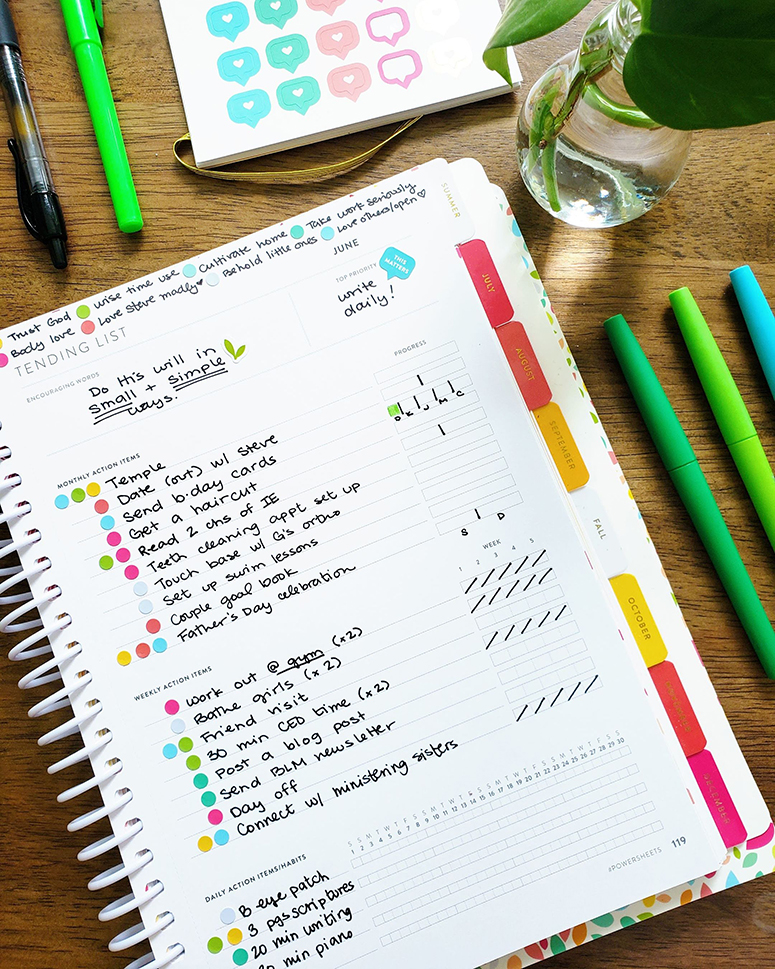 Trust God wise time use Cultivate home Take work seriously
Body love Love Steve madly Behold little ones Love others/open
JUNE
TENDING LIST
TOP PRIORITY
THIS MATTERS
write
daily!
ENCOURAGING WORDS
Do His will in
small + simple
ways.
PROGRESS
MONTHLY ACTION ITEMS
Temple
Date (out) w/ Steve
Send b·day cards
D K J M C
Get a haircut
Read 2 chs of IE
Teeth cleaning appt set up
Touch base w/ G's ortho
Set up swim lessons
Couple goal book
Father's Day celebration
S D
WEEKLY ACTION ITEMS
WEEK
1 2 3 4 5
Work out @ gym (x2)
Bathe girls (x2)
Friend visit
30 min CEO time (x2)
Post a blog post
Send BLM newsletter
Day off
Connect w/ ministering sisters
DAILY ACTION ITEMS/HABITS
S S M T W T F S S M T W T F S S M T W T F S S M T W T F S S
1 2 3 4 5 6 7 8 9 10 11 12 13 14 15 16 17 18 19 20 21 22 23 24 25 26 27 28 29 30
B eye patch
3 pgs scriptures
20 min writing
min piano
#POWERSHEETS 119
SUMMER
JULY
AUGUST
SEPTEMBER
FALL
OCTOBER
DECEMBER